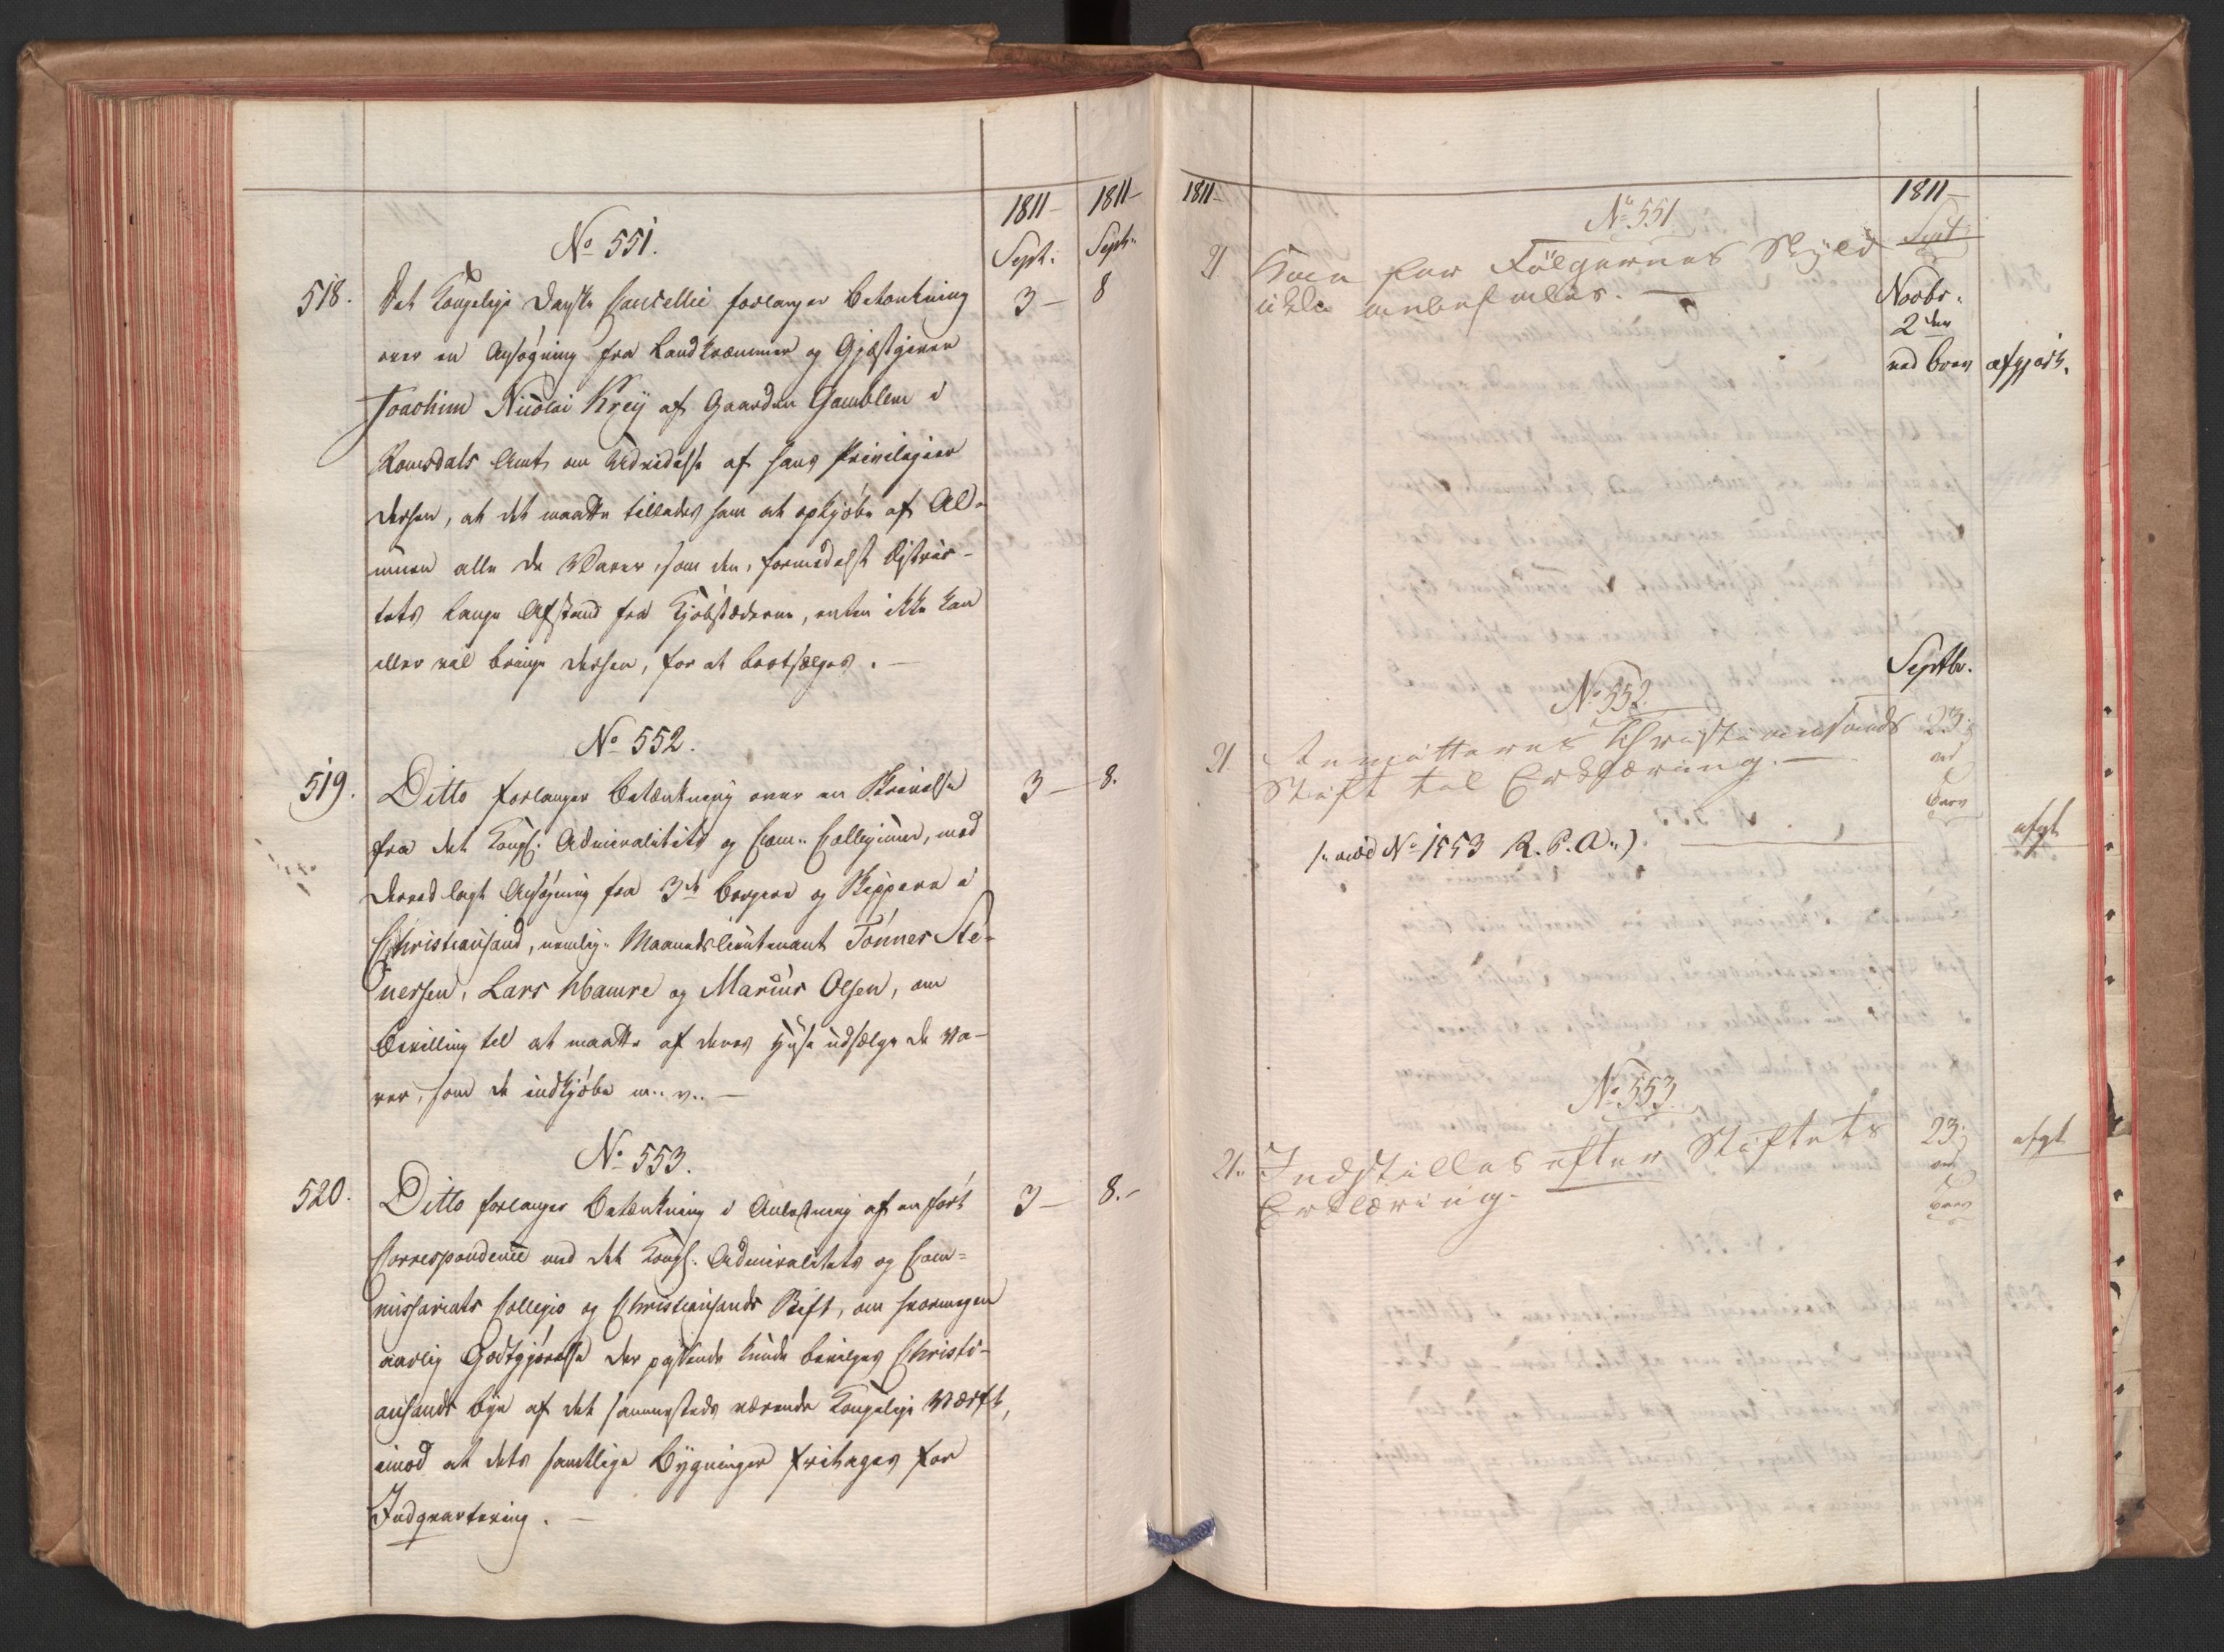 1811-
Sept:
1811-
Septr
No 551.
518.
Det Kongelige Danske Cancellie forlanger Betænkning
3-
8
over en Ansøgning fra Landkræmmer og Gjæstgiver
Joachim Nicolai Krey af Gaarden Gamblem i
Romsdals Amt, om Udvidelse af hans Privilegier
derhen, at det maatte tillades ham at opkjøbe af Al-
muen alle de Varer, som den, formedelst Distric-
tets lange Afstand fra Kjøbstæderne, enten ikke kan
eller vil bringe derhen, for at bortsælges. -
No 552.
519.
Ditto forlanger Betænkning over en Skrivelse
3-
8.
fra det Kongl. Admiralitets og Com.. Collegium, med
derved lagt Ansøgning fra 3de Borgere og Skippere i
Christiansand, nemlig: Maanedslieutenant Tønnes Ste-
nersen, Lars Hamre og Marius Olsen, om
Bevilling til at maatte af deres Huse udsælge de Va-
rer, som de indkjøbe m.. v.. -
No 553.
520.
Ditto forlanger Betænkning i Anledning af en ført
3-
8.-
Correspondence med det Kongl. Admiralitets og Com-
missariats Collegio og Christiansands Stift, om hvormegen
aarlig Godtgjørelse der passende kunde bevilges Christi-
ansands Bye af det sammesteds værende Kongelige Værft,
imod at dets samtlige Bygninger fritages for
Indqvartering. -
1811-
1811-
Sept
No 551
21
Kan for Følgernes Skyld
ikke anbefales. -
Novbr.
2den
ved Brev
afgjort.
Septbr.
No 552.
21.
Christiansands
Stift til Erklæring. -
23.
ved
Brev
afgt
(: med No 1553 R. P. A..)
No 553.
21..
Indstilles efter Stiftets
Erklæring.
23.
ved
Brev
afgt